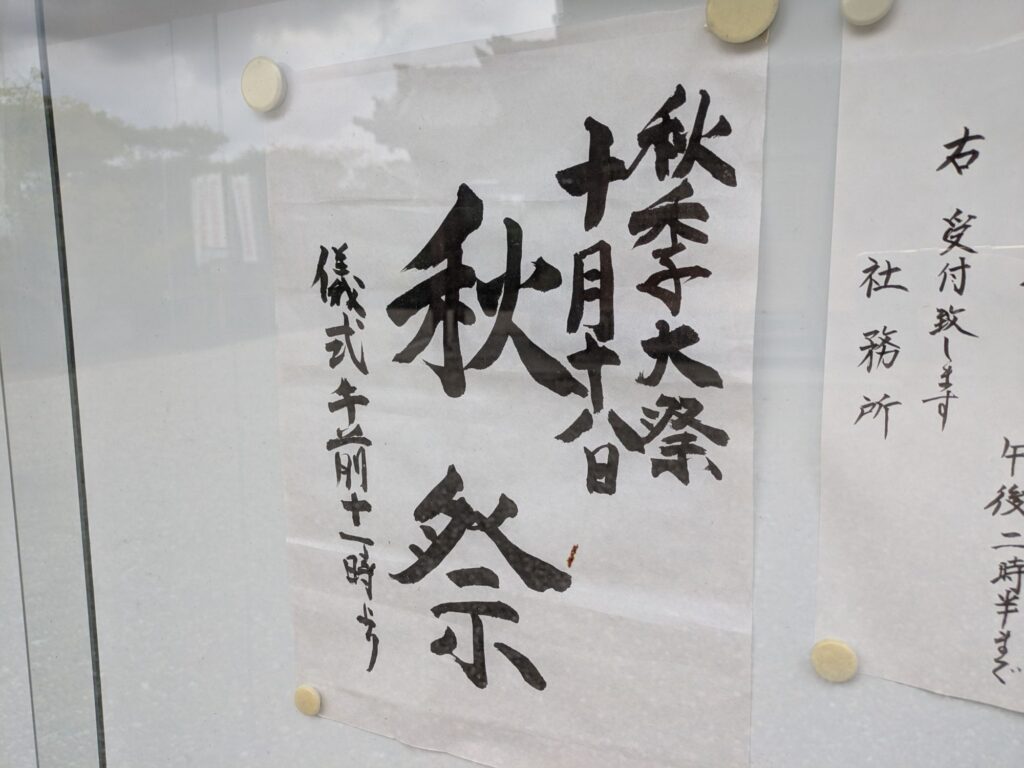 午後二時半まで
右 受付致します
社務所
秋季大祭
十月十八日
秋祭
儀式午前十一時より